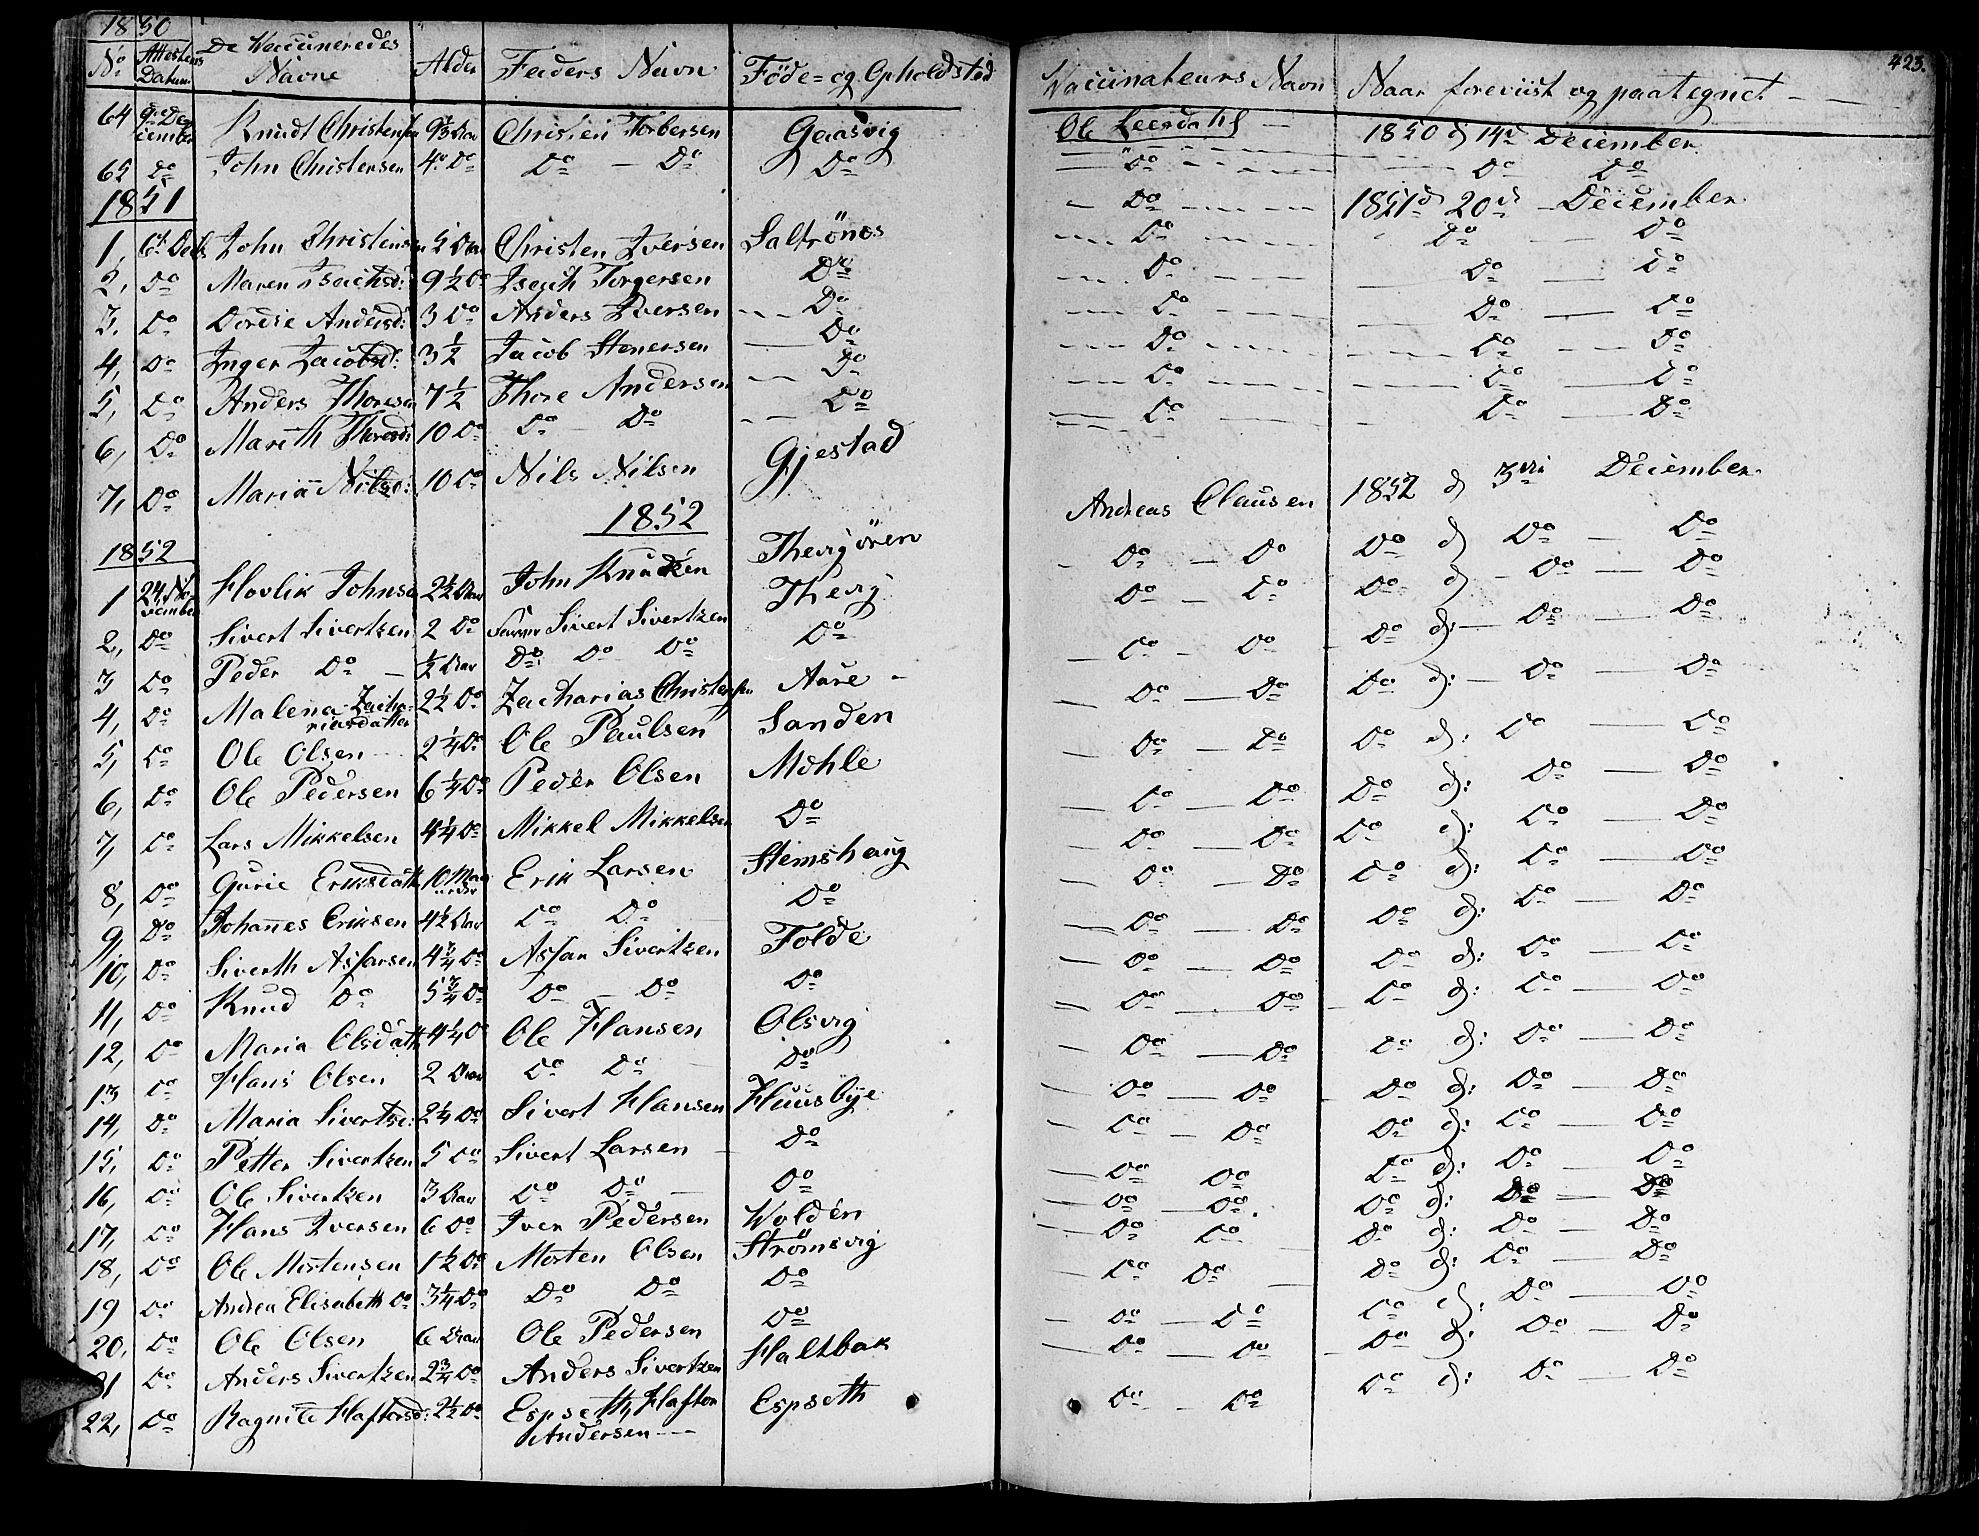 423.
1850
No Attestens Datum De Vaccineredes Navne Alder Faders Navn Föde= og Opholdsted Vaccinateurs Navn Naar foreviist og paategnet
64 9de December Knudt Christensen 9½ Aar Christen Torbersen Geasvig Ole Leerdahl 1850 d 14d December
65 Do John Christensen 4 Do Do Do Do Do Do Do
1851
1, 6t Decb John Christensen 5 Aar Christen Iversen Saltrönes Do 1851 d 20d December
2, Do Maren Isachsd: 9½ Do Isach Torgersen Do Do Do Do
3, Do Dordie Andersd: 3 Do Anders Iversen Do Do Do Do
4, Do Inger Jacobsd: 3½ Jacob Stenersen Do Do Do Do
5, Do Anders Thoresen 7½ Thore Andersen Do Do Do Do
6, Do Marith Thoresd: 10 Do Do Do Do Do Do Do
7, Do Mariã Nilsd: 10 Do Nils Nilsen Gjestad Do Do Do
1852
1852
1 24 November Hovlik Johnsen 2½ Aar John Knudsen Thevigören Andreas Clausen 1852 d 3die December
2, Do Sivert Sivertzen 2 Do Sivert Sivertzen Thevig Do Do Do d Do Do
3 Do Peder Do ½ Aar Do Do Do Do Do Do Do d Do Do
4, Do Malena Zachariasdatter 2½ Do Zacharias Christensen Aure Do Do Do d: Do Do
5, Do Ole Olsen 2¼ Do Ole Paulsen Sanden Do Do Do d: Do Do
6, Do Ole Pedersen 6¼ Do Peder Olsen Mohle Do Do Do d: Do Do
7, Do Lars Mikkelsen 4¼ Do Mikkel Mikkelsen Do Do Do Do d: Do Do
8, Do Gurie Eriksdatt 10 Maaneder Erik Larsen Stemshaug Do Do Do d: Do Do
9, Do Johannes Eriksen 4½ Aar Do Do Do Do Do Do d: Do Do
10, Do Siverth Assarsen 4¾ Do Assar Sivertzen Folde Do Do Do d: Do Do
11, Do Knud Do 5¾ Do Do Do Do Do Do Do d: Do Do
12, Do Maria Olsdatt 4¼ Do Ole Hansen Olsvig Do Do Do d: Do Do
13 Do Hans Olsen 2 Aar Do Do Do Do Do Do d: Do Do
14, Do Maria Sivertsd: 2¼ Do Sivert Hansen Huusbye Do Do Do d: Do Do
15, Do Petter Sivertzen 5 Do Sivert Larsen Do Do Do Do d: Do Do
16, Do Ole Sivertzen 3 Aar Do Do Do Do Do Do d: Do Do
17, Do Hans Iversen 6 Do Iver Pedersen Wolden Do Do Do d: Do Do
18, Do Ole Mortensen 1½ Do Morten Olsen Strömsvig Do Do Do d: Do Do
19 Do Andrea Elisabeth Do 3¼ Do Do Do Do Do Do Do d: Do Do
20, Do Ole Olsen 6 Aar Ole Pedersen Do Do Do Do d: Do Do
21 Do Anders Sivertzen 2¾ Do Anders Sivertzen Haltbak Do Do Do d: Do Do
22, Do Ragnild Haftorsd: 2½ Do Espseth, Haftor Andersen Espseth Do Do Do d: Do Do